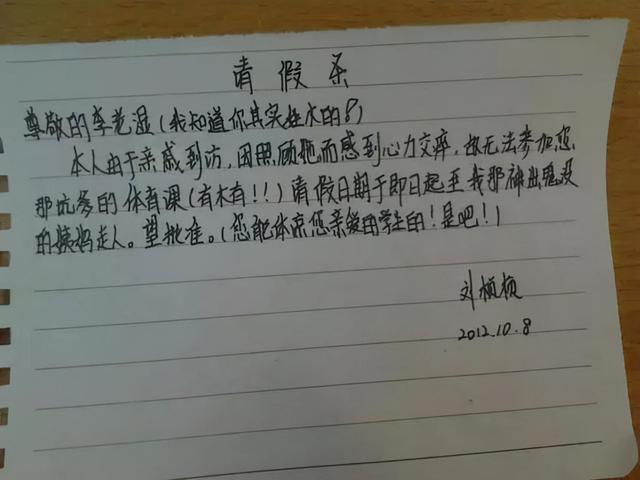 请假条
尊敬的李老湿(我知道你其实姓水的!)
本人由于亲戚到访,因照顾她而感到心力交瘁,故无法参加您
那坑爹的体育课(有木有!!)请假日期于即日起至我那神出鬼没
的姨妈走人。望批准。(您能体谅您亲爱的学生的!是吧!)
刘桢桢
2012.10.8